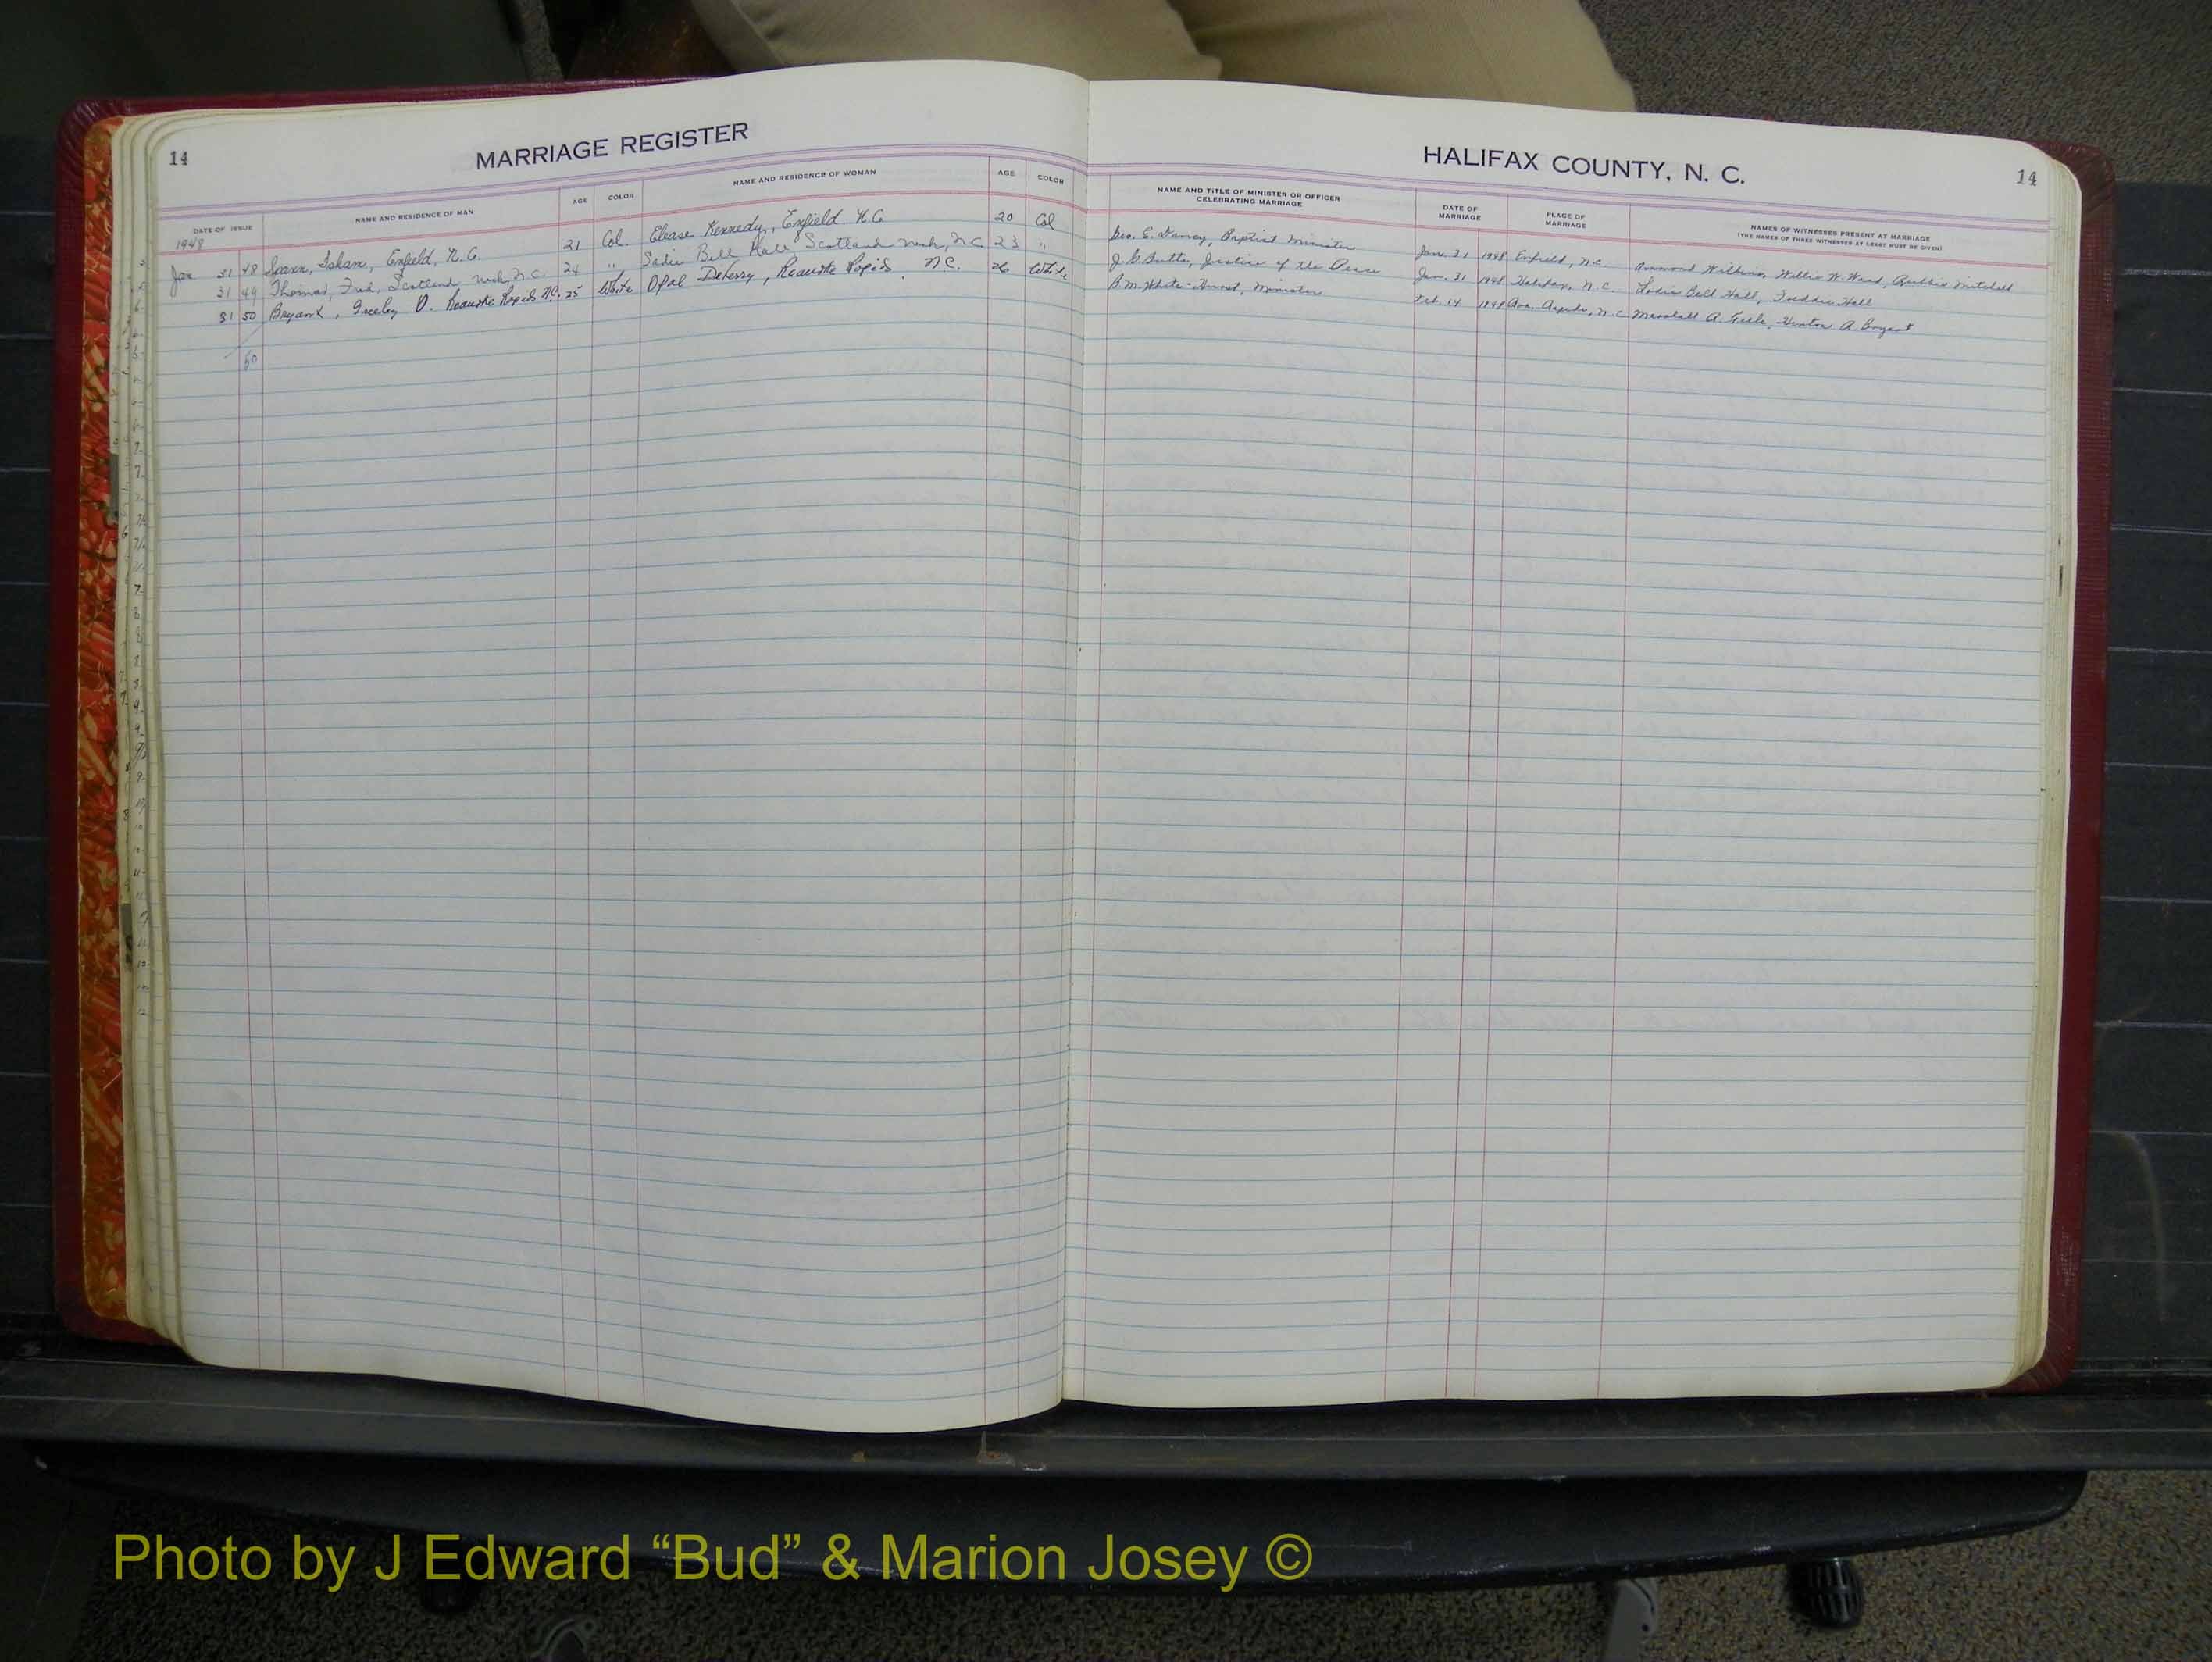 14
MARRIAGE REGISTER
DATE OF ISSUE NAME AND RESIDENCE OF MAN AGE COLOR NAME AND RESIDENCE OF WOMAN AGE COLOR
1948
Jan 31 48 Isham, Enfield, N.C. 21 Col. Elease Kennedy, Enfield N.C 20 Col
31 49 Thomas, Fred, Scotland Neck, N.C. 24 " Sadie Bell Hall Scotland Neck, N.C 23 "
31 50 Bryant, Greeley O. Roanoke Rapids N.C. 25 White Opal DeBerry, Roanoke Rapids, N.C. 26 White
50
HALIFAX COUNTY, N. C.
14
NAME AND TITLE OF MINISTER OR OFFICER CELEBRATING MARRIAGE DATE OF MARRIAGE PLACE OF MARRIAGE NAMES OF WITNESSES PRESENT AT MARRIAGE
(THE NAMES OF THREE WITNESSES AT LEAST MUST BE GIVEN)
Geo. E. Dancy, Baptist Minister Jan. 31 1948 Enfield, N.C. Wilkins, Willie W. Ward, Mitchell
J. C. Butts, Justice of the Peace Jan. 31 1948 Halifax, N.C. Bell Hall, Freddie Hall
B.M. White-Hurst, Minister Feb. 14 1948 Roa. Rapids, N.C Marshall A. Hinton A. Bryant
Photo by J Edward “Bud” & Marion Josey ©